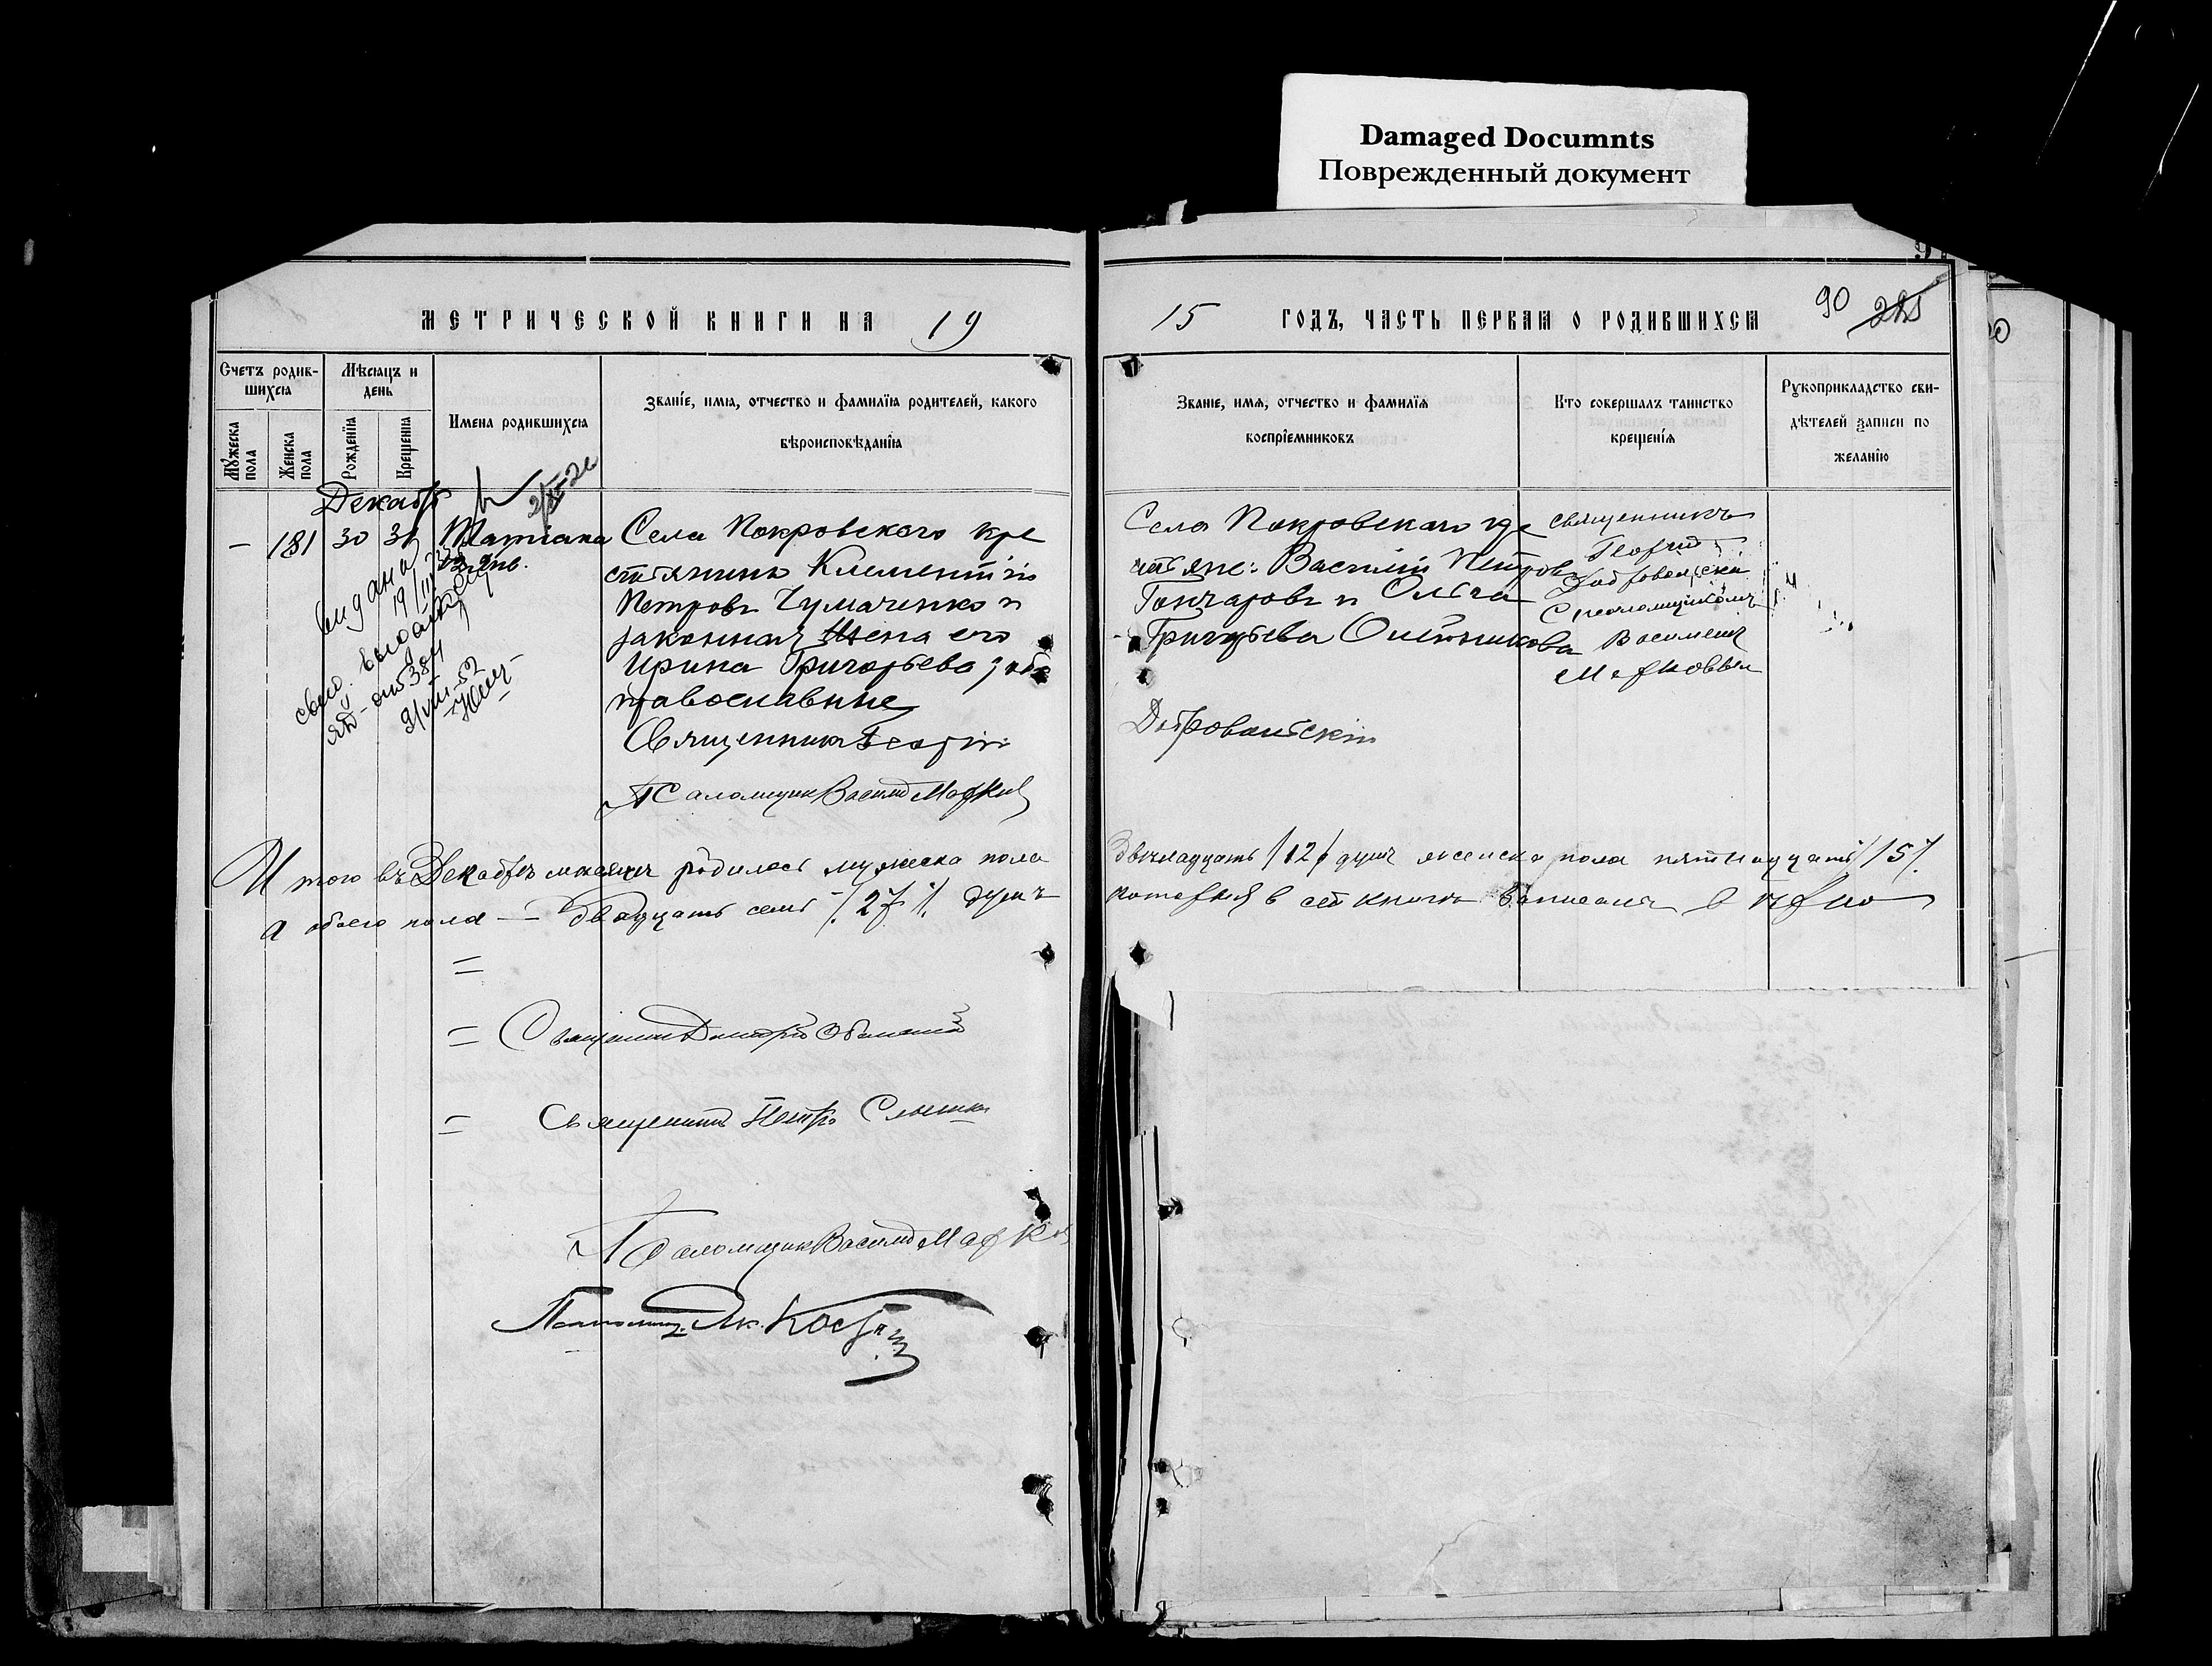 Damaged Documnts
Поврежденный документ
МЕТРИЧЕСКОЙ КНИГИ НА 19
15 ГОДЪ, ЧАСТЬ ПЕРВАЯ О РОДИВШИХСЯ 90
Счетъ родив-
шихся
Мужеска пола
Женска пола
Мѣсяцъ и
день
Рожденїя
Крещенїя
Имена родившихся
Званїе, имя, отчество и фамилїя родителей, какого
вѣроисповѣданїя
Званїе, имя, отчество и фамилїя
воспрїемниковъ
Кто совершалъ таинство
крещенїя
Рукоприкладство сви-
дѣтелей записи по
желанїю
Декабр
– 181 30 31 Татіана
12 Янв.
видана
19/III
Села Покровского кре
стьянинъ Климентій
Петровъ Чумаченко и
законная жена его
Ирина Григорьева, оба
православные
Священникъ Георгій
Псаломщик Василий Марков
Села Покровскаго кре
стьяне: Василій Петров
Гончаровъ и Ольга
Григорьева Олейникова
священникъ
Георгий
Добровольскій
С псаломщикомъ
Василіем
Марковым
Добровольскій
Итого въ Декабрѣ месяце родилось мужеска пола
двенадцать /12/ душъ женска пола пятнадцать /15/
а обоего пола — двадцать семь /27/. душъ
которыя в сей книге записаны верно
Священник Дмитрій
Священникъ Петръ
Псаломщик Василий Марков
Псаломщ. Як.